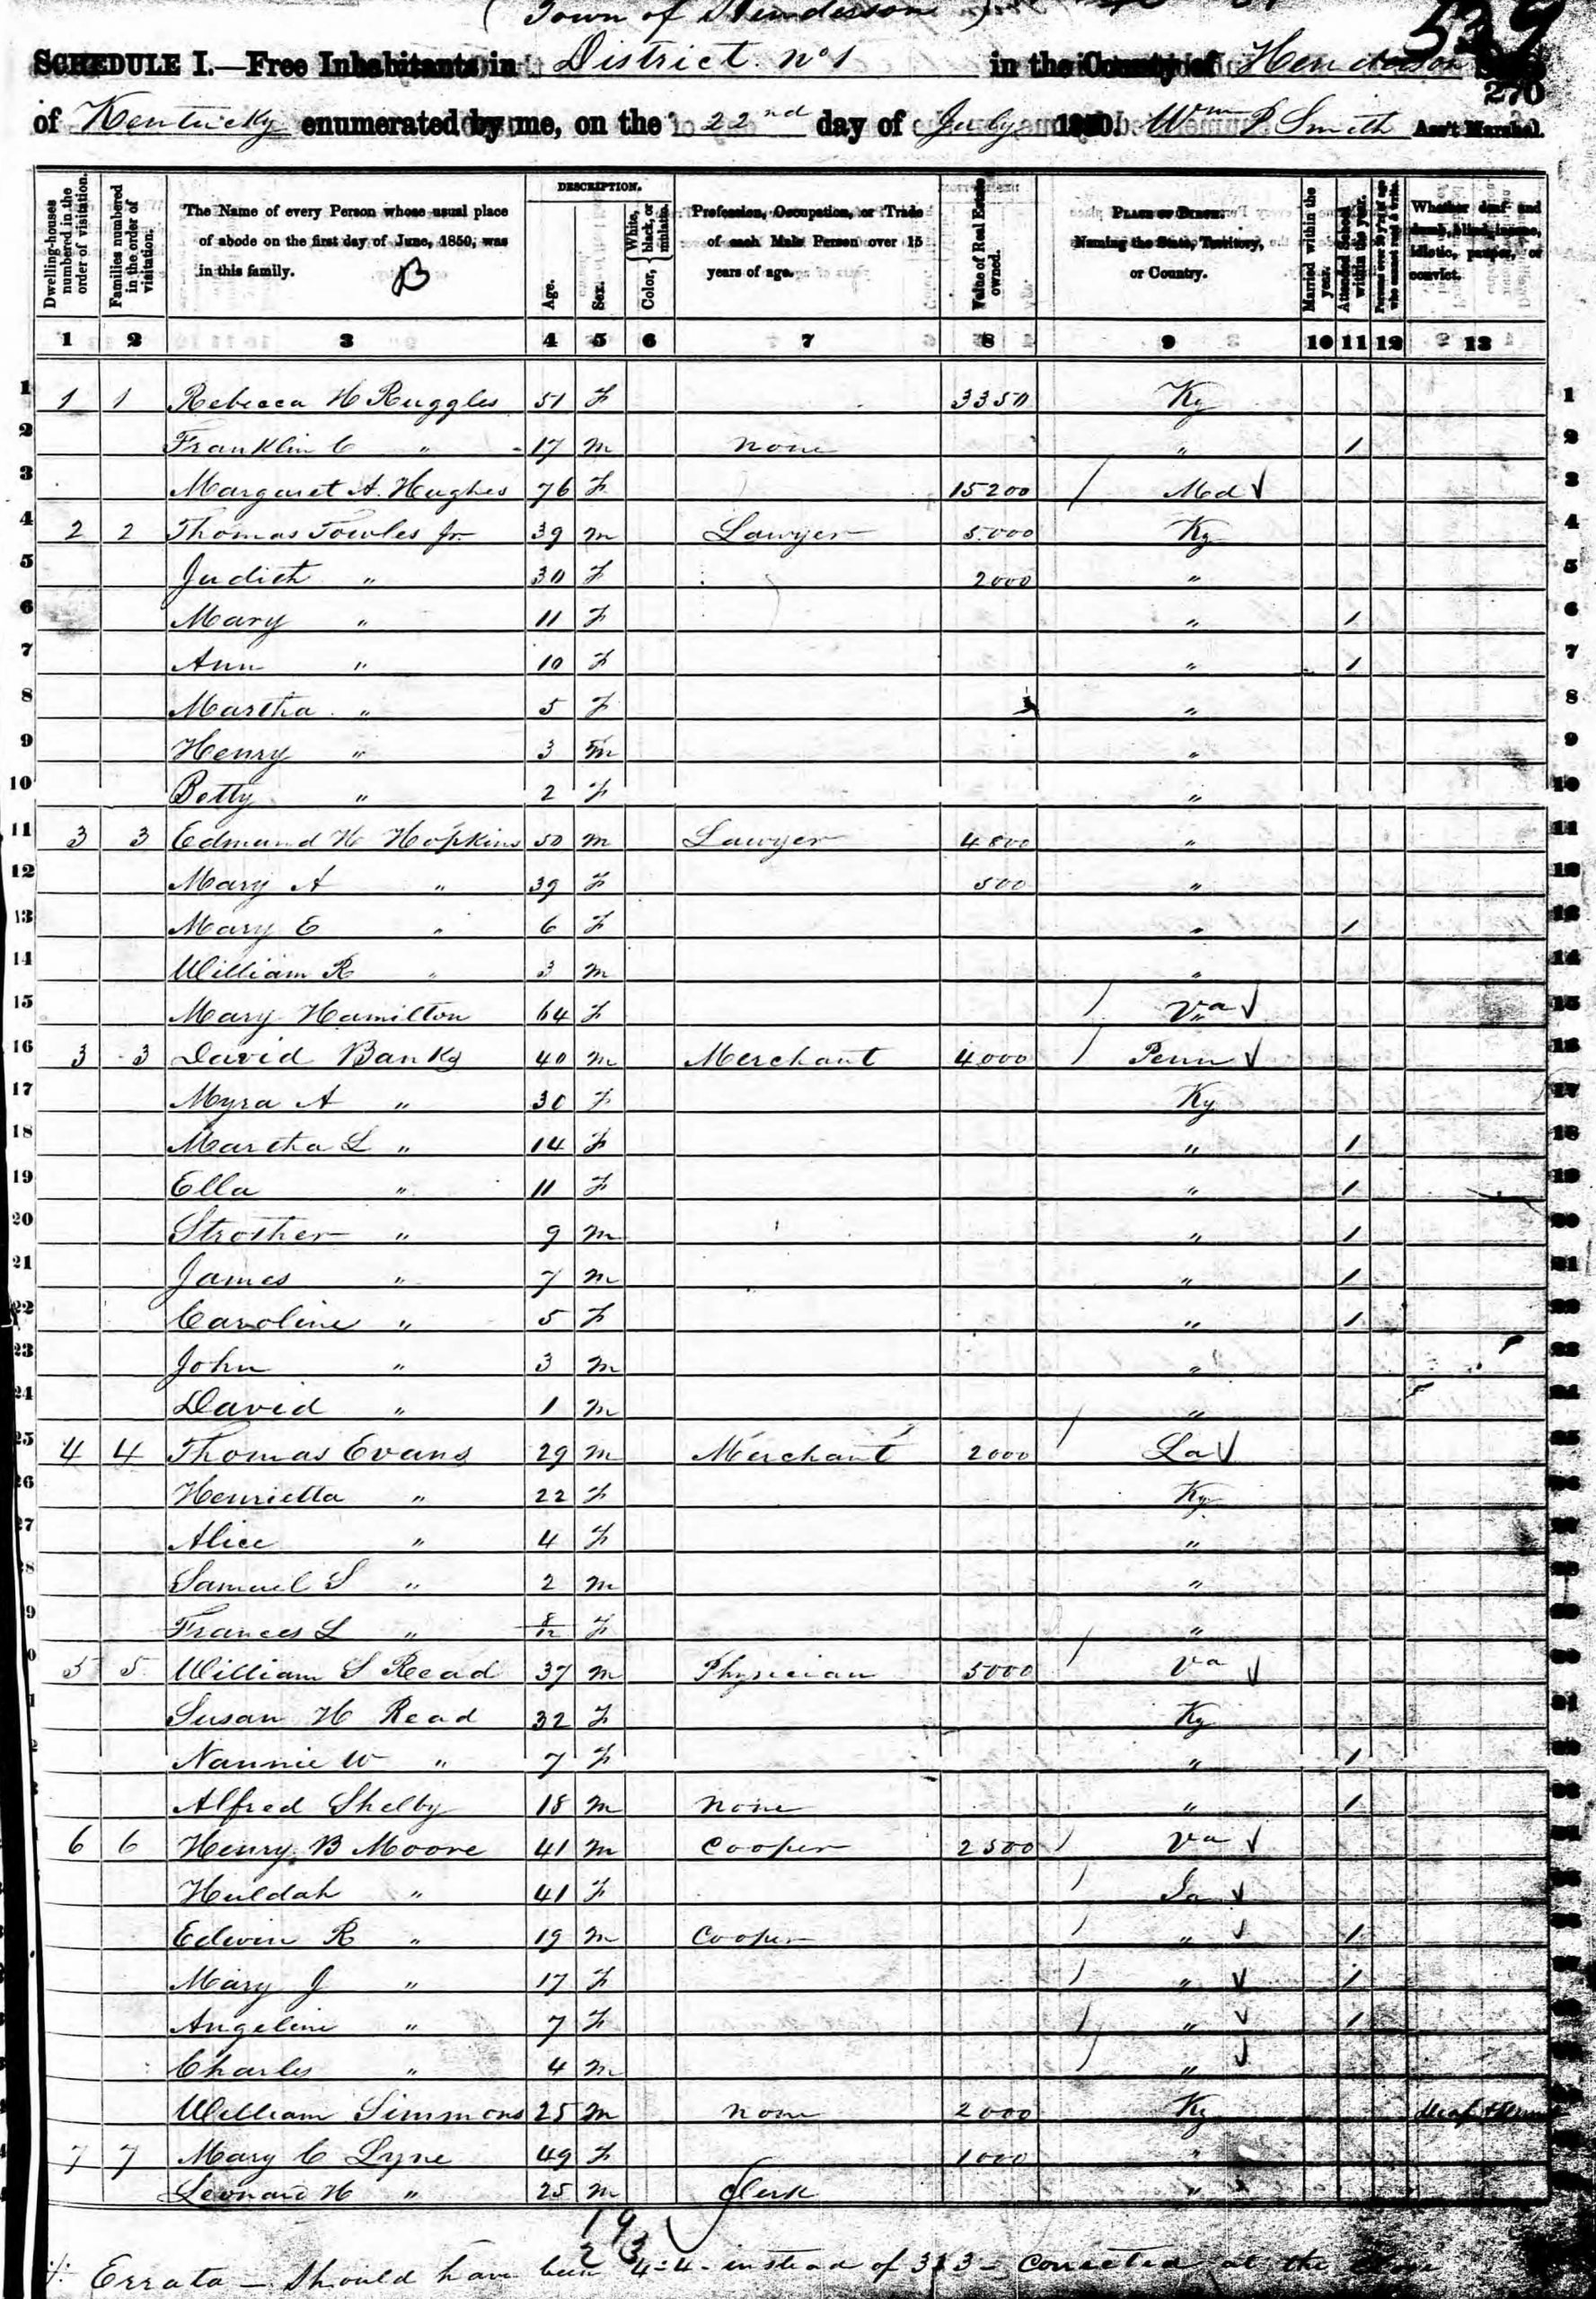 (Town of Henderson)
539
SCHEDULE I.—Free Inhabitants in District No 1 in the County of Henderson State
270
of Kentucky enumerated by me, on the 22nd day of July 1850. Wm P Smith Ass't Marshal.
Dwelling-houses numbered in the order of visitation.
Families numbered in the order of visitation.
The Name of every Person whose usual place of abode on the first day of June, 1850, was in this family.
B
DESCRIPTION.
Age.
Sex.
Color, White, black, or mulatto.
Profession, Occupation, or Trade of each Male Person over 15 years of age.
Value of Real Estate owned.
PLACE OF BIRTH. Naming the State, Territory, or Country.
Married within the year.
Attended School within the year.
Persons over 20 y'rs of age who cannot read & write.
Whether deaf and dumb, blind, insane, idiotic, pauper, or convict.
1 2 3 4 5 6 7 8 9 10 11 12 13
1 1 1 Rebecca H Ruggles 51 F 3350 Ky 1
2 Franklin C " 17 m none " 1 2
3 Margaret A. Hughes 76 F 15200 / Md ✓ 3
4 2 2 Thomas Towles Jr. 39 m Lawyer 5.000 Ky 4
5 Judith " 30 F 2000 " 5
6 Mary " 11 F " 1 6
7 Ann " 10 F " 1 7
8 Martha " 5 F " 8
9 Henry " 3 m " 9
10 Betty " 2 F " 10
11 3 3 Edmund H Hopkins 50 m Lawyer 4800 " 11
12 Mary A " 39 F 500 " 12
13 Mary E " 6 F " 1 13
14 William R " 3 m " 14
15 Mary Hamilton 64 F / Va ✓ 15
16 3 3 David Banks 40 m Merchant 4000 / Penn ✓ 16
17 Myra A " 30 F Ky 17
18 Martha L " 14 F " 1 18
19 Ella " 11 F " 1 19
20 Strother " 9 m " 1 20
21 James " 7 m " 1 21
22 Caroline " 5 F " 1 22
23 John " 3 m " 23
24 David " 1 m " 24
25 4 4 Thomas Evans 29 m Merchant 2000 / La ✓ 25
26 Henrietta " 22 F Ky 26
27 Alice " 4 F " 27
28 Samuel S " 2 m "
9 Frances L " 8/12 F "
0 5 5 William S Read 37 m Physician 5000 / Va ✓
1 Susan H Read 32 F Ky
2 Nannie W " 7 F " 1
Alfred Shelby 18 m none " 1
6 6 Henry B Moore 41 m Cooper 2500 / Va ✓
Huldah " 41 F / Ia ✓
Edwin R " 19 m Cooper / " ✓ 1
Mary J " 17 F / " ✓ 1
Angeline " 7 F / " ✓ 1
Charles " 4 m / " ✓
William Simmons 25 m none 2000 Ky deaf &
7 7 Mary C Lyne 49 F 1000 "
Leonard H " 25 m Clerk "
19
23
Errata — Should have been 4=4 - instead of 3&3 — Corrected at the